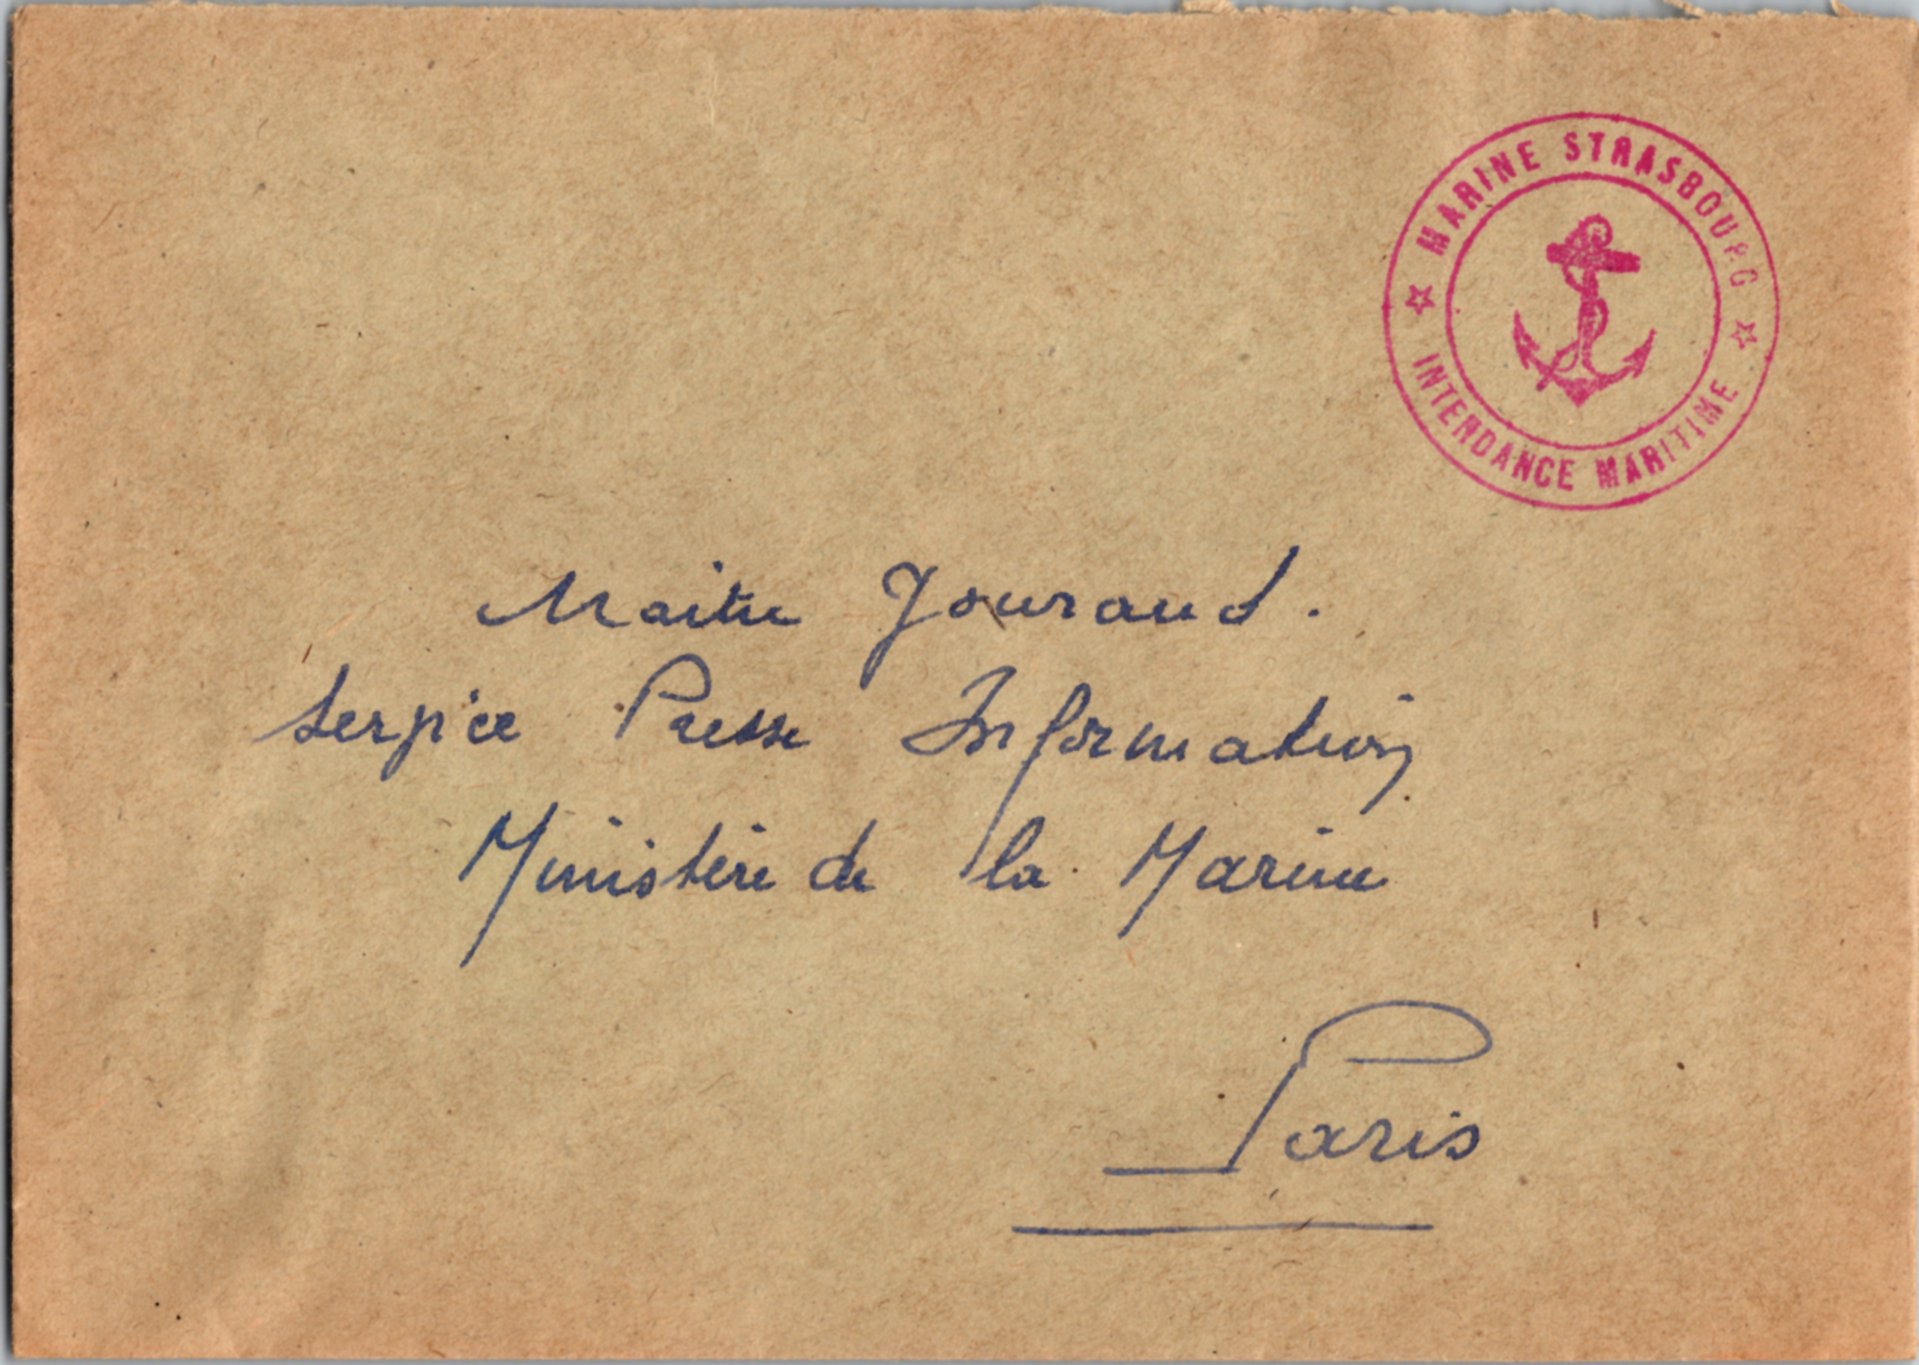 MARINE STRASBOURG
INTENDANCE MARITIME
Maitre Jouraud.
Service Presse Information
Ministère de la Marine
Paris